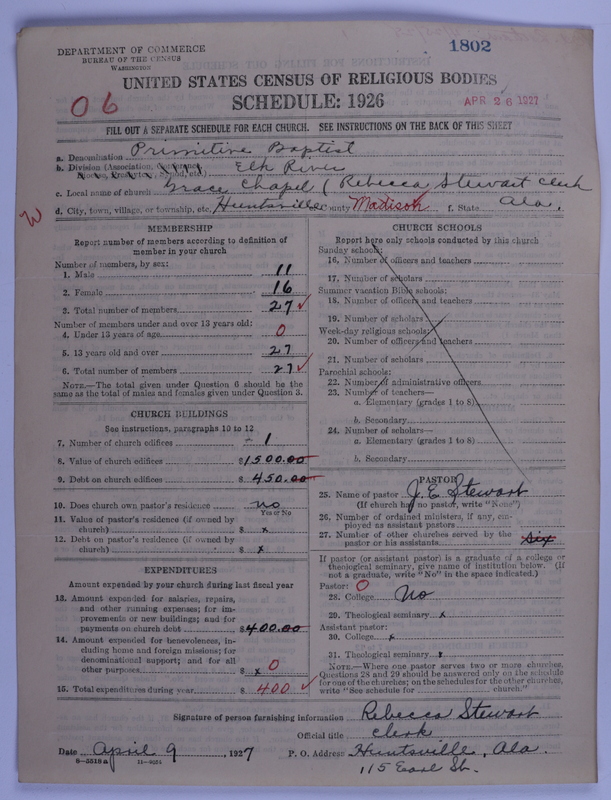 DEPARTMENT OF COMMERCE
BUREAU OF THE CENSUS
WASHINGTON
1802
UNITED STATES CENSUS OF RELIGIOUS BODIES
SCHEDULE: 1926
06
APR 26 1927
FILL OUT A SEPARATE SCHEDULE FOR EACH CHURCH. SEE INSTRUCTIONS ON THE BACK OF THIS SHEET
a. Denomination Primitive Baptist
b. Division (Association, Conference, Diocese, Presbytery, Synod, etc.) Elk River
c. Local name of church Grace Chapel (Rebecca Stewart clerk
d. City, town, village, or township, etc. Huntsville County Madison f. State Ala.
W
MEMBERSHIP
Report number of members according to definition of
member in your church
Number of members, by sex:
1. Male 11
2. Female 16
3. Total number of members 27 ✓
Number of members under and over 13 years old:
4. Under 13 years of age 0
5. 13 years old and over 27
6. Total number of members 27 ✓
NOTE.—The total given under Question 6 should be the
same as the total of males and females given under Question 3.
CHURCH BUILDINGS
See instructions, paragraphs 10 to 12
7. Number of church edifices 1
8. Value of church edifices $1500.00
9. Debt on church edifices $450.00
10. Does church own pastor's residence no
Yes or No
11. Value of pastor's residence (if owned by
church) $ x
12. Debt on pastor's residence (if owned by
church) $ x
EXPENDITURES
Amount expended by your church during last fiscal year
13. Amount expended for salaries, repairs,
and other running expenses; for im-
provements or new buildings; and for
payments on church debt $400.00
14. Amount expended for benevolences, in-
cluding home and foreign missions; for
denominational support; and for all
other purposes $ x 0
15. Total expenditures during year $ 400 ✓
CHURCH SCHOOLS
Report here only schools conducted by this church
Sunday schools:
16. Number of officers and teachers
17. Number of scholars
Summer vacation Bible schools:
18. Number of officers and teachers
19. Number of scholars
Week-day religious schools:
20. Number of officers and teachers
21. Number of scholars
Parochial schools:
22. Number of administrative officers
23. Number of teachers—
a. Elementary (grades 1 to 8)
b. Secondary
24. Number of scholars—
a. Elementary (grades 1 to 8)
b. Secondary
PASTOR
25. Name of pastor J. E. Stewart
(If church has no pastor, write "None")
26. Number of ordained ministers, if any, em-
ployed as assistant pastors
27. Number of other churches served by the
pastor or his assistants six
If pastor (or assistant pastor) is a graduate of a college or
theological seminary, give name of institution below. (If
not a graduate, write "No" in the space indicated.)
Pastor: 0
28. College No
29. Theological seminary x
Assistant pastor:
30. College x
31. Theological seminary x
NOTE.—Where one pastor serves two or more churches,
Questions 28 and 29 should be answered only on the schedule
for one of the churches; on the schedules for the other churches,
write "See schedule for church."
Signature of person furnishing information Rebecca Stewart
Official title clerk
Date April 9 1927
P. O. Address Huntsville, Ala.
115 Earl St.
8—5518 a